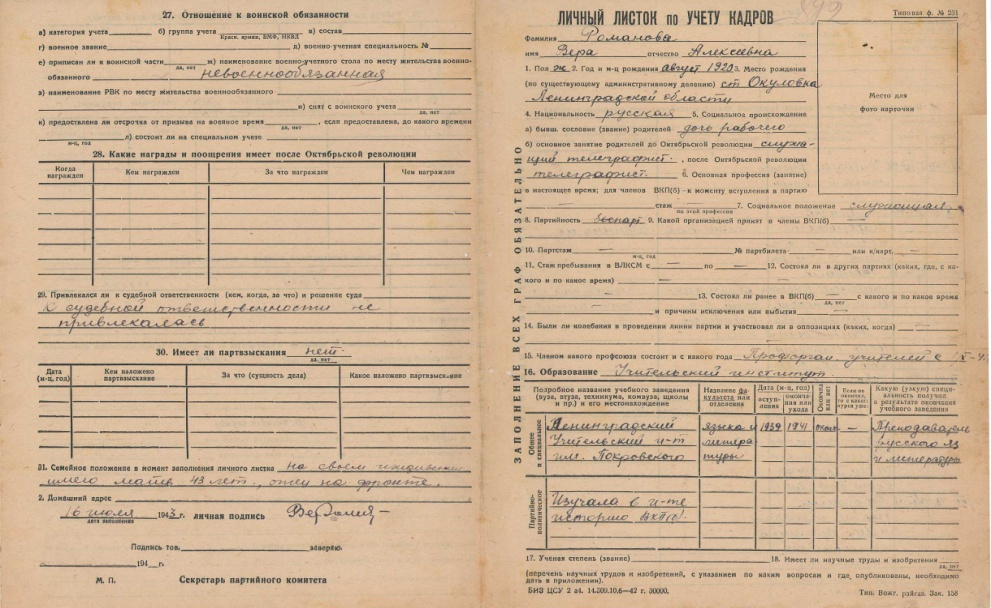 27. Отношение к воинской обязанности
а) категория учета б) группа учета в) состав
Красн. армия, ВМФ, НКВД
г) военное звание д) военно-учетная специальность №
е) приписан ли к воинской части ж) наименование военно-учетного стола по месту жительства военно-
да, нет
обязанного невоеннообязанная
з) наименование РВК по месту жительства военнообязанного
и) снят с воинского учета
да, нет
к) предоставлена ли отсрочка от призыва на военное время , если предоставлена, до какого времени
да, нет
л) состоит ли на специальном учете
м-ц, год
28. Какие награды и поощрения имеет после Октябрьской революции
Когда награжден Кем награжден За что награжден Чем награжден
29. Привлекался ли к судебной ответственности (кем, когда, за что) и решение суда
К судебной ответственности не
привлекалась
30. Имеет ли партвзыскания нет.
да, нет
Дата (м-ц, год) Кем наложено партвзыскание За что (сущность дела) Какое наложено партвзыскание
31. Семейное положение в момент заполнения личного листка на своем иждивении
имею мать 43 лет, отец на фронте.
2. Домашний адрес
16 июля 1943 г. личная подпись
дата заполнения
Подпись тов. заверяю.
194 г.
М. П. Секретарь партийного комитета
Типовая ф. № 231
ЛИЧНЫЙ ЛИСТОК по УЧЕТУ КАДРОВ
Фамилия Романова
имя Вера отчество Алексеевна
1. Пол ж 2. Год и м-ц рождения август 1920 3. Место рождения
(по существующему административному делению) ст Окуловка
Ленинградской области
Место для
фото карточки
4. Национальность русская 5. Социальное происхождение
а) бывш. сословие (звание) родителей рабочего
б) основное занятие родителей до Октябрьской революции служа-
щий телеграфист. , после Октябрьской революции
телеграфист. 6. Основная профессия (занятие)
в настоящее время; для членов ВКП(б)-к моменту вступления в партию
— стаж — 7. Социальное положение служащая
по этой профессии
8. Партийность беспарт 9. Какой организацией принят в члены ВКП(б) —
10. Партстаж — № партбилета — или к/карт. —
м-ц, год
11. Стаж пребывания в ВЛКСМ с — по — 12. Состоял ли в других партиях (каких, где, с ка-
кого и по какое время) —
13. Состоял ли ранее в ВКП(б) — с какого и по какое время
да, нет
— и причины исключения или выбытия —
14. Были ли колебания в проведении линии партии и участвовал ли в оппозициях (каких, когда) —
15. Членом какого профсоюза состоит и с какого года учителей с
16. Образование Учительский институт
ЗАПОЛНЕНИЕ ВСЕХ ГРАФ ОБЯЗАТЕЛЬНО
Подробное название учебного заведения (вуза, втуза, техникума, комвуза, школы и пр.) и его местонахождение Название факультета или отделения Дата (м-ц, год) вступления окончания или ухода Окончил или нет Если не окончил, то с какого курса ушел Какую (узкую) специальность получил в результате окончания учебного заведения
Общее и специальное
Ленинградский языка и 1939 1941 окон. — Преподаватель
Учительский и-т литера русского яз
им. Покровского туры и литературы
Партийно-политическое
Изучала в и-те
историю ВКП(б)
17. Ученая степень (звание) 18. Имеет ли научные труды и изобретения
да, нет
(перечень научных трудов и изобретений, с указанием по каким вопросам и где, опубликованы, необходимо
дать в приложении).
БИЗ ЦСУ 2 а4. 14.309.10.6—42 г. 50000. Тип. Вожг. райгаз. Зак. 158